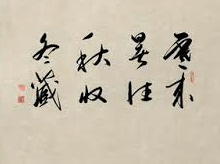 寒来
暑往
秋收
冬藏